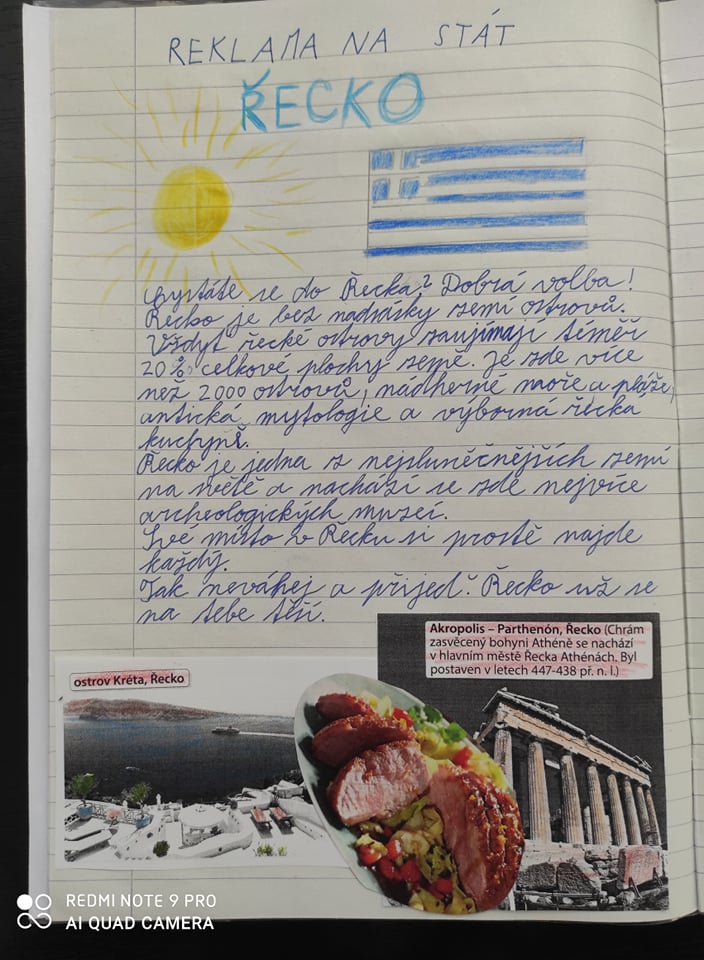 REKLAMA NA STÁT
ŘECKO
Chystáte se do Řecka? Dobrá volba!
Řecko je bez nadsázky zemí ostrovů.
Vždyť řecké ostrovy zaujímají téměř
20% celkové plochy země. Je zde více
než 2000 ostrovů, nádherné moře a pláže,
antická mytologie a výborná řecká
kuchyně.
Řecko je jedna z nejslunečnějších zemí
na světě a nachází se zde nejvíce
archeologických muzeí.
Své místo v Řecku si prostě najde
každý.
Tak neváhej a přijeď. Řecko už se
na tebe těší.
Akropolis – Parthenón, Řecko (Chrám
zasvěcený bohyni Athéně se nachází
v hlavním městě Řecka Athénách. Byl
postaven v letech 447-438 př. n. l.)
ostrov Kréta, Řecko
REDMI NOTE 9 PRO
AI QUAD CAMERA